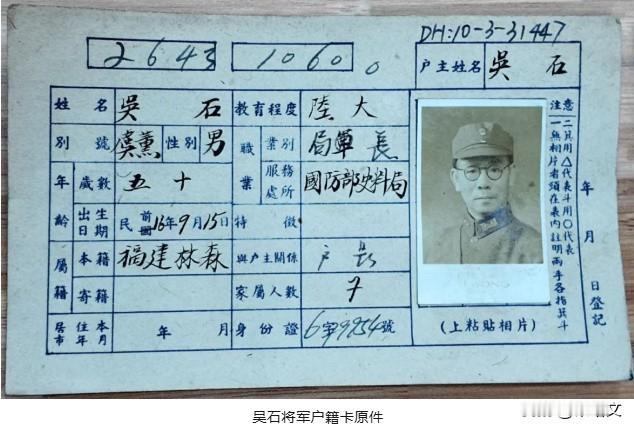 DH:10-3-31447
2643 1060 0
户主姓名 吳石
姓名 吳石 教育程度 陸大
別號 虞薰 性別 男 職業 業別 局單長
年齡 歲數 五十 服務處所 國防部史料局
出生日期 民前國16年9月15日 特徵
屬籍 本籍 福建林森 與户主關係 户長
寄籍 家屬人數 7
居住本市年月 年 月 身份證 6字9954號
注意
一無相片者須在表內註明兩手各指箕斗
二箕用△代表斗用○代表
年 月 日登記
(上粘貼相片)
吴石将军户籍卡原件